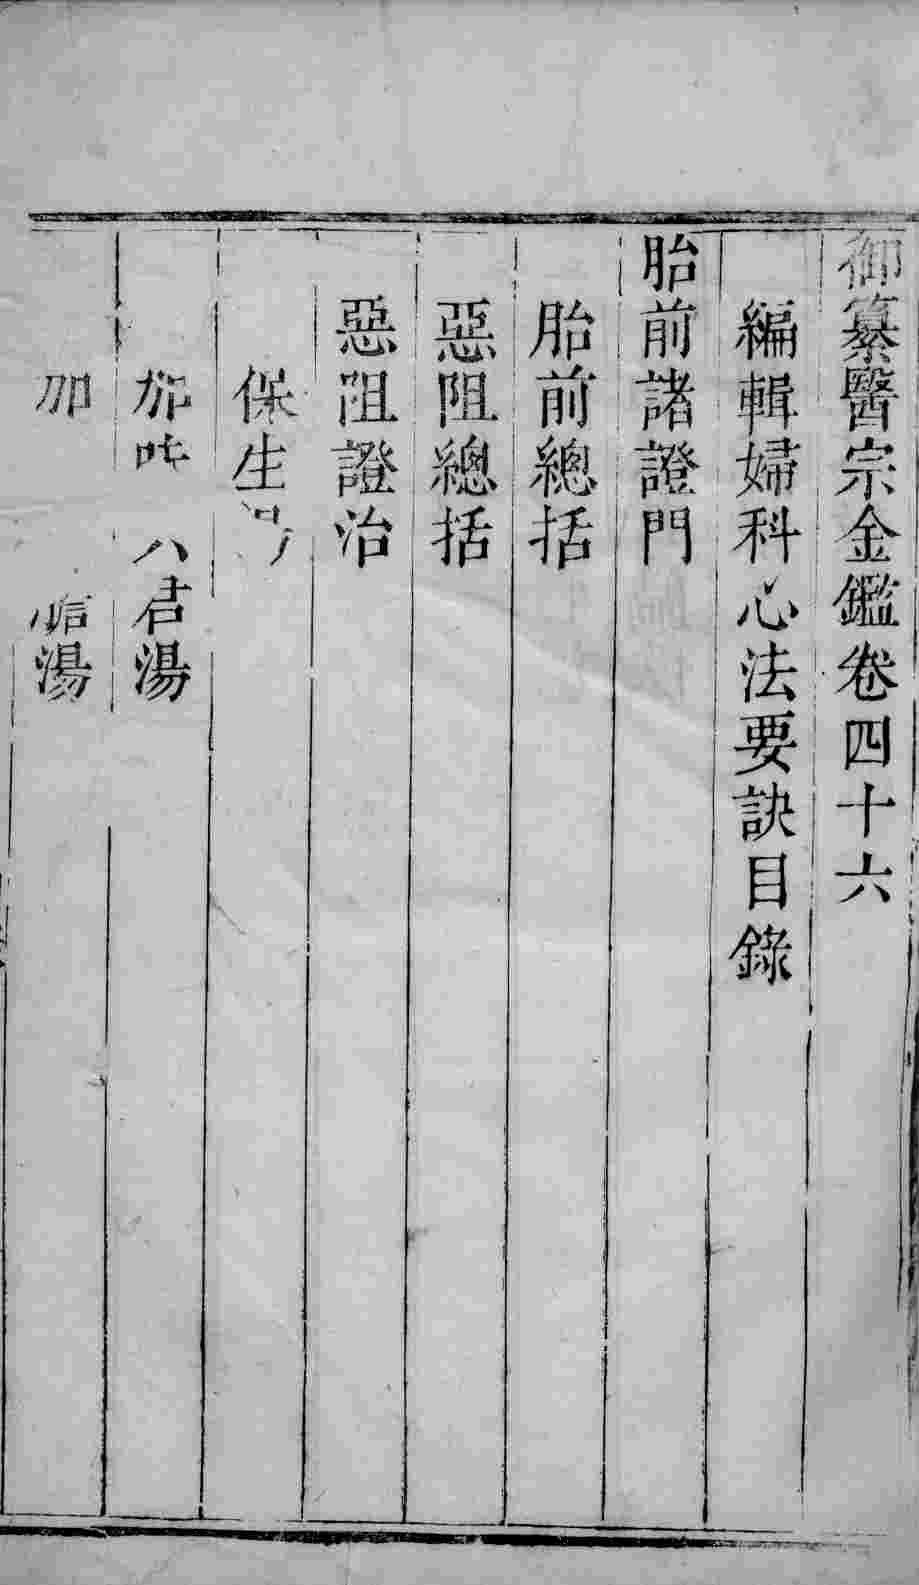 御纂醫宗金鑑卷四十六
編輯婦科心法要訣目錄
胎前諸證門
胎前總括
惡阻總括
惡阻證治
保生湯
加味六君湯
加 湯